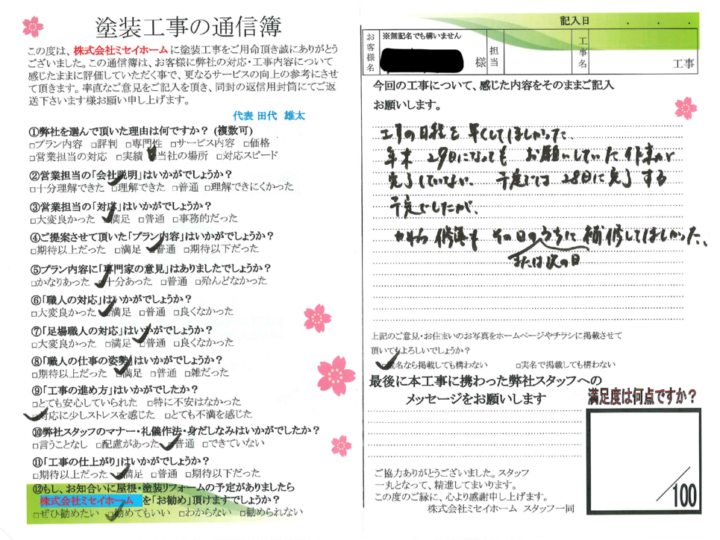 塗装工事の通信簿
この度は、株式会社ミセイホームに塗装工事をご用命頂き誠にありがとう
ございました。この通信簿は、お客様に弊社の対応・工事内容について
感じたままに評価していただく事で、更なるサービスの向上の参考にさせ
て頂きます。率直なご意見をご記入を頂き、同封の返信用封筒にてご返
送下さいます様お願い申し上げます。
代表 田代 雄太
①弊社を選んで頂いた理由は何ですか? (複数可)
□プラン内容 □評判 □専門性 □サービス内容 □価格
□営業担当の対応 □実績 当社の場所 □対応スピード
②営業担当の「会社説明」はいかがでしょうか?
□十分理解できた 理解できた □普通 □理解できにくかった
③営業担当の「対応」はいかがでしょうか?
□大変良かった 満足 □普通 □事務的だった
④ご提案させて頂いた「プラン内容」はいかがでしょうか?
□期待以上だった □満足 普通 □期待以下だった
⑤プラン内容に「専門家の意見」はありましたでしょうか?
□かなりあった 十分あった □普通 □殆んどなかった
⑥「職人の対応」はいかがでしょうか?
□大変良かった 満足 □普通 □良くなかった
⑦「足場職人の対応」はいかがでしょうか?
□大変良かった □満足 普通 □良くなかった
⑧「職人の仕事の姿勢」はいかがでしょうか?
□期待以上だった 満足 □普通 □雑だった
⑨「工事の進め方」はいかがでしたか?
□とても安心していられた □特に不安はなかった
対応に少しストレスを感じた □とても不満を感じた
⑩弊社スタッフのマナー・礼儀作法・身だしなみはいかがでしたか?
□言うことなし □配慮があった 普通 □できていない
⑪「工事の仕上がり」はいかがでしょうか?
□期待以上だった 満足 □普通 □期待以下だった
⑫もし、お知合いに屋根・塗装リフォームの予定がありましたら
株式会社ミセイホーム を「お勧め」頂けますでしょうか?
□ぜひ勧めたい 勧めてもいい □わからない □勧められない
記入日 . . .
お客様名
※無記名でも構いません
様
担当
工事名
工事
今回の工事について、感じた内容をそのままご記入
お願いします。
工事の日程を早くしてほしかった、
年末29日になっても お願いしていた作業が
完了していない、予定では28日に完了する
予定でしたが、
修理も その日のうちに補修してほしかった、
または次の日
上記のご意見・お住まいのお写真をホームページやチラシに掲載させて
頂いてもよろしいでしょうか?
匿名なら掲載しても構わない □実名で掲載しても構わない
最後に本工事に携わった弊社スタッフへの
メッセージをお願いします
満足度は何点ですか?
/100
ご協力ありがとうございました。スタッフ
一丸となって、精進してまいります。
この度のご縁に、心より感謝申し上げます。
株式会社ミセイホーム スタッフ一同